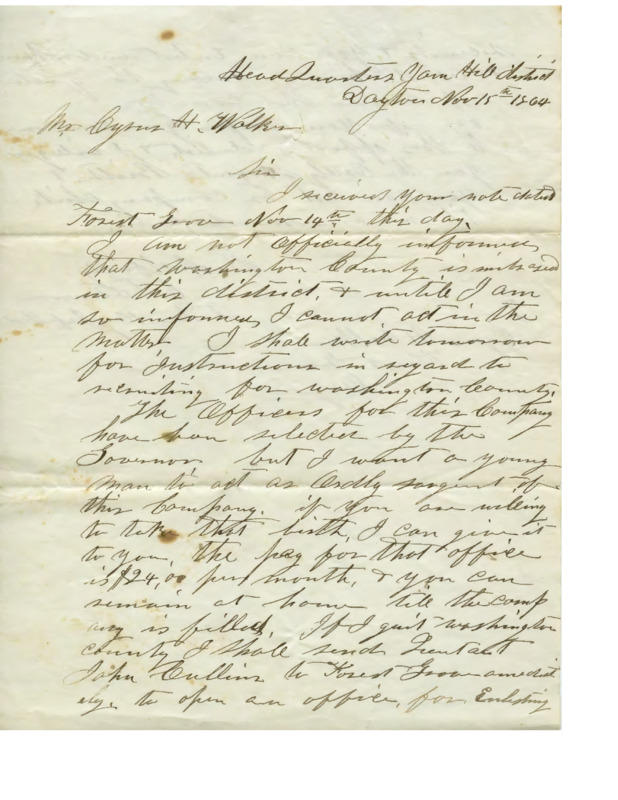 Head Quarters Yam Hill district
Dayton Nov 15th 1864
Mr Cyrus H. Walker
Sir
I received your note dated
Forest Grove Nov 14th this day.
I am not officially informed
that Washington County is imbraced
in this district, & untill I am
so informed, I cannot act in the
matter I shall write tomorrow
for Instructions in regard to
recruiting for washington County.
The Officers for this Company
have ban selected by the
Governor but I want a young
man to act as Ordly sargent of
this Company. if you are willing
to take that birth, I can give it
to you, the pay for that office
is $24,00 per month, & you can
remain at home till the comp
any is filled, If I quit washington
county I shall send Lieutant
John Cullins to Forest Grove amediat
ely. to open an office, for Enlisting